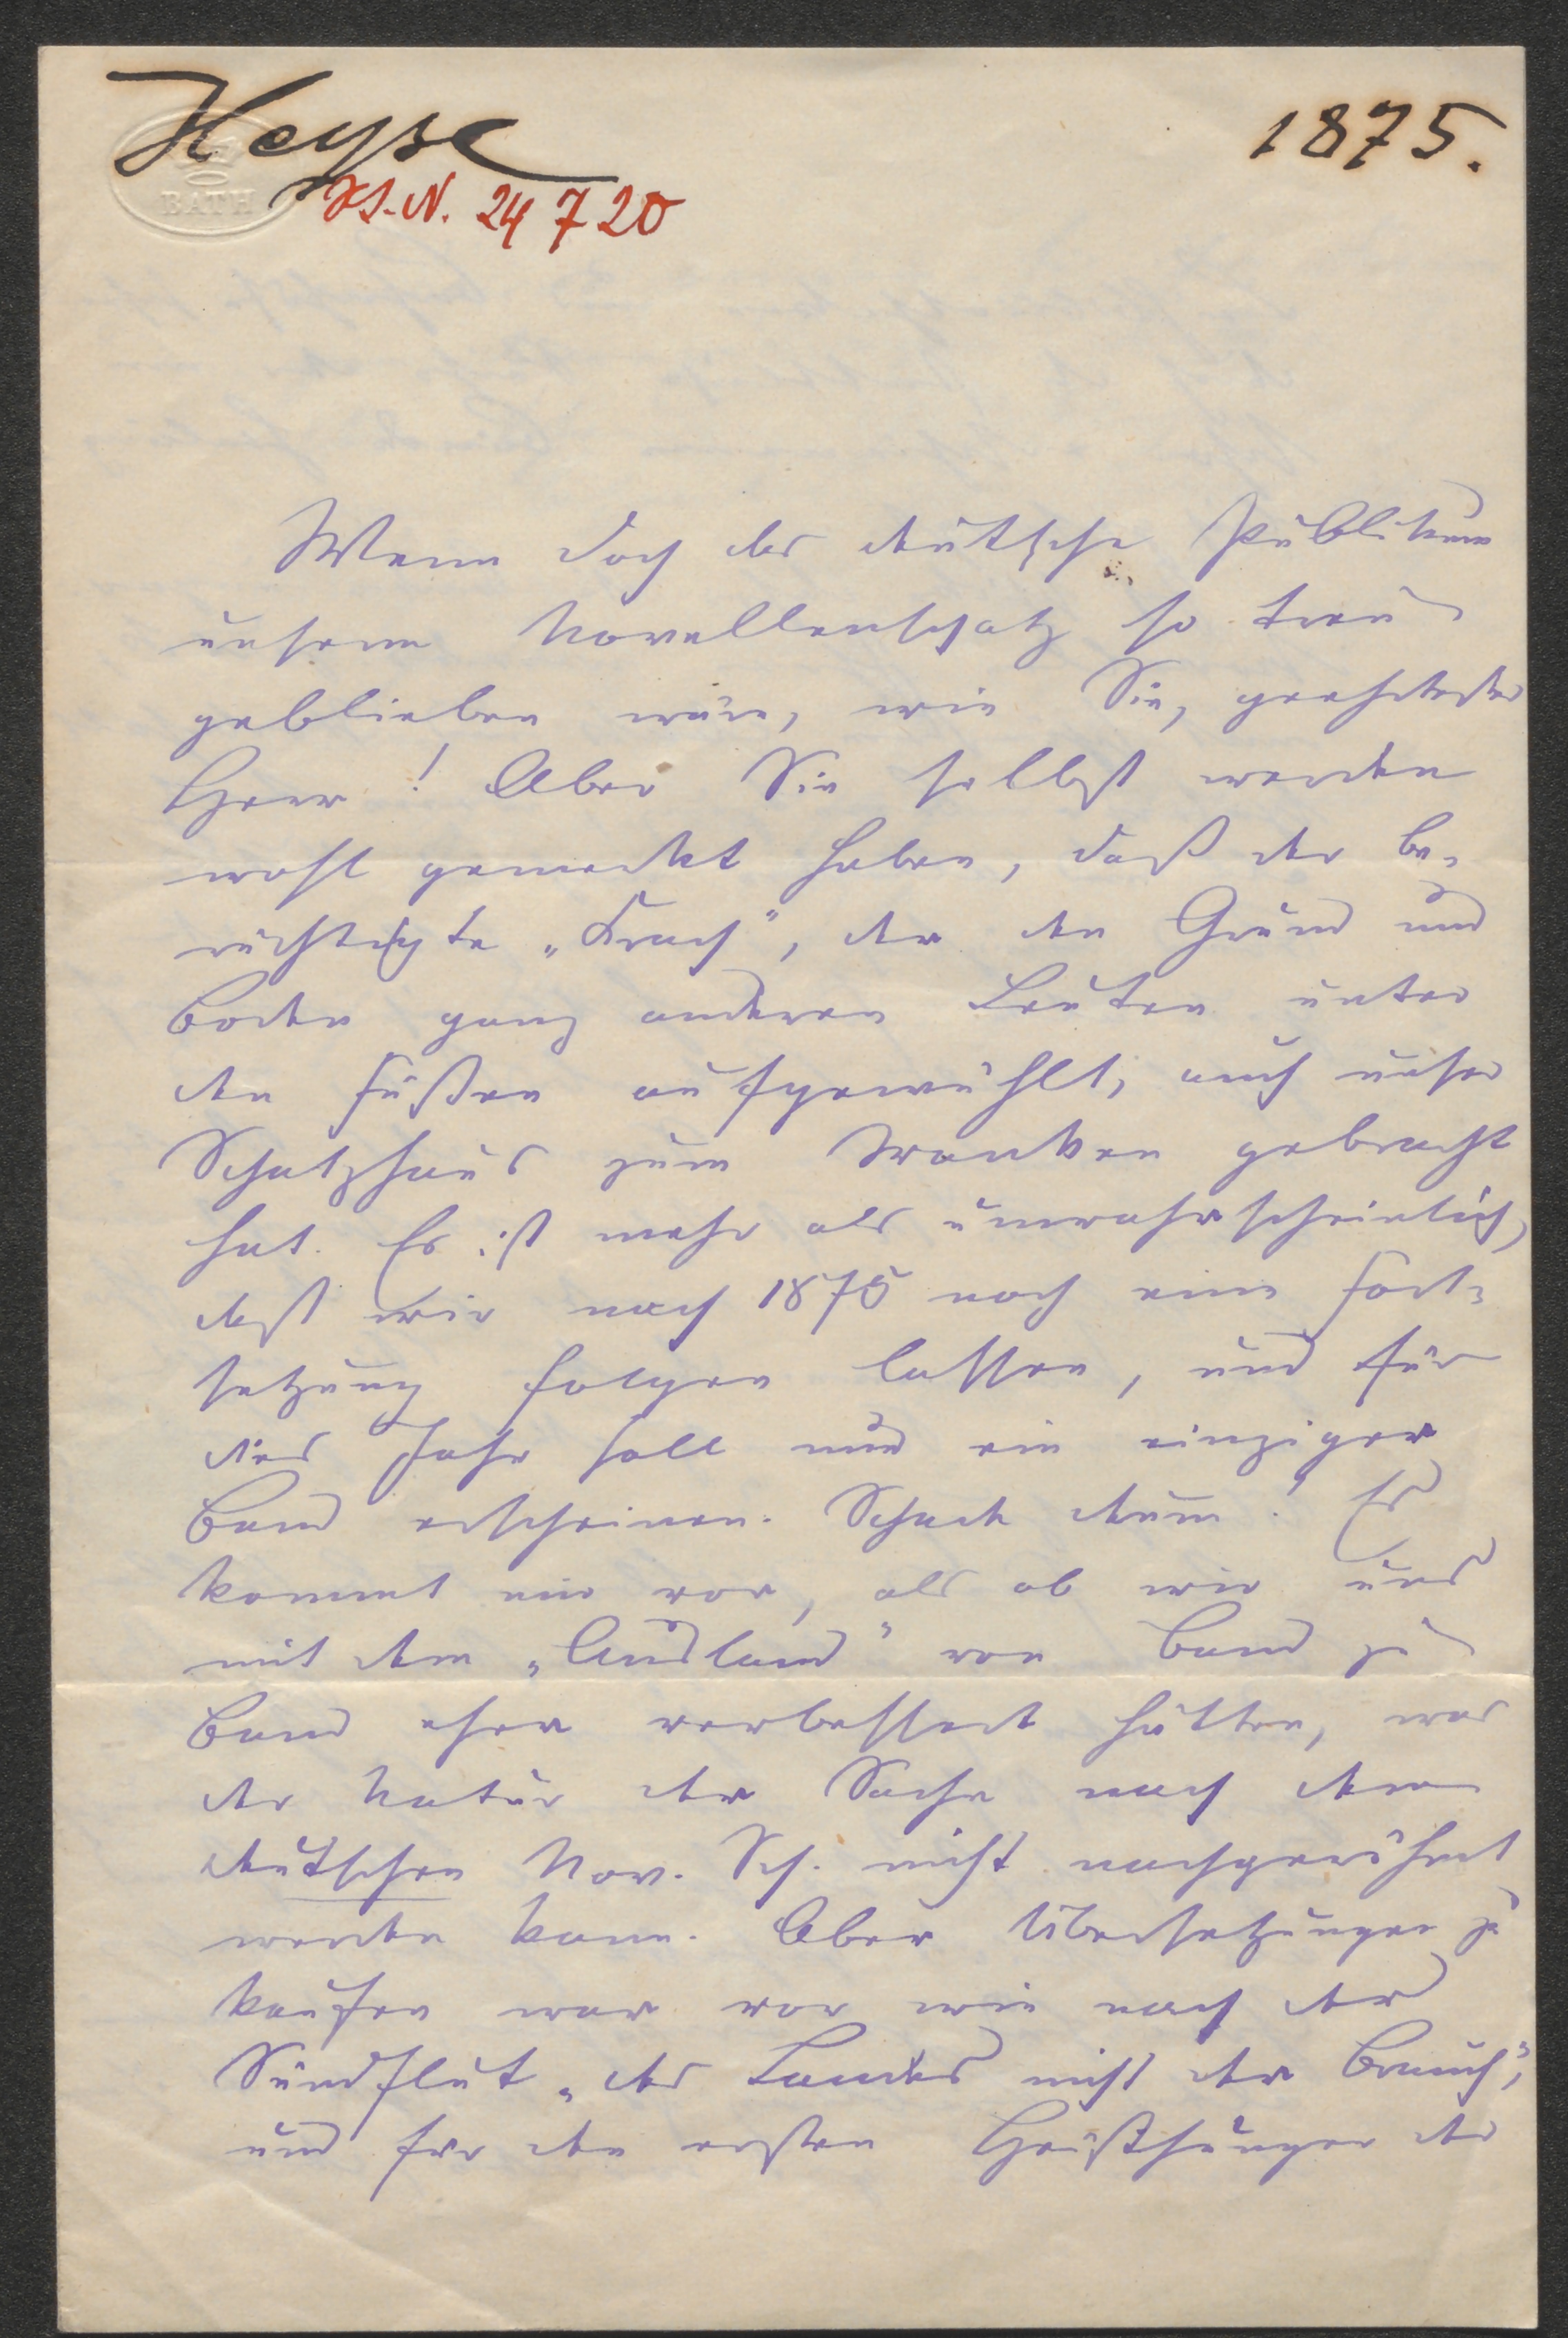 Heyse
1875.
BATH
H.I.N. 24720
Wenn doch das deutsche Publikum
unserm Novellenschatz so treu
geblieben wäre, wie Sie, geehrtester
Herr! Aber Sie selbst werden
wohl gemerkt haben, daß der be-
rüchtigte „Krach", der den Grund und
Boden ganz anderen Leuten unter
den Füßen aufgewühlt, auch unser
Schatzhaus zum Wanken gebracht
hat. Es ist mehr als unwahrscheinlich,
daß wir nach 1875 noch eine Fort-
setzung folgen lassen, und für
dies Jahr soll nur ein einziger
Band erscheinen. Schade drum! Es
kommt mir vor, als ob wir uns
mit dem „Ausland" von Band zu
Band eher verbessert hätten, was
der Natur der Sache nach dem
deutschen Nov. Sch. nicht nachgerühmt
werden kann. Aber Übersetzungen zu
kaufen war vor wie nach der
Sündflut „des Landes nicht der Brauch",
und für den ersten Heißhunger der